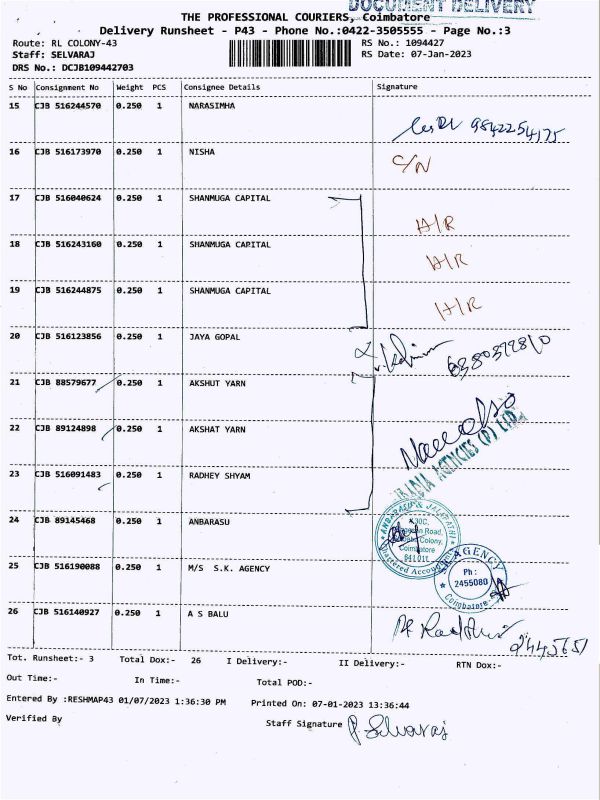 DOCUMENT DELIVERY
THE PROFESSIONAL COURIERS, Coimbatore
Delivery Runsheet - P43 - Phone No.:0422-3505555 - Page No.:3
Route: RL COLONY-43 RS No.: 1094427
Staff: SELVARAJ RS Date: 07-Jan-2023
DRS No.: DCJB109442703
S No Consignment No Weight PCS Consignee Details Signature
15 CJB 516244570 0.250 1 NARASIMHA
9842254175
16 CJB 516173970 0.250 1 NISHA
C/N
17 CJB 516040624 0.250 1 SHANMUGA CAPITAL
H/R
18 CJB 516243160 0.250 1 SHANMUGA CAPITAL
H/R
19 CJB 516244875 0.250 1 SHANMUGA CAPITAL
H/R
20 CJB 516123856 0.250 1 JAYA GOPAL
21 CJB 88579677 0.250 1 AKSHUT YARN
22 CJB 89124898 0.250 1 AKSHAT YARN
AGENCIES (P) LTD.
23 CJB 516091483 0.250 1 RADHEY SHYAM
24 CJB 89145468 0.250 1 ANBARASU
Colony,
Coimbatore
641 011
25 CJB 516190088 0.250 1 M/S S.K. AGENCY
AGENCY
Ph :
2455080
Coimbatore
26 CJB 516140927 0.250 1 A S BALU
2445651
Tot. Runsheet:- 3 Total Dox:- 26 I Delivery:- II Delivery:- RTN Dox:-
Out Time:- In Time:- Total POD:-
Entered By :RESHMAP43 01/07/2023 1:36:30 PM Printed On: 07-01-2023 13:36:44
Verified By Staff Signature P. Selvaraj